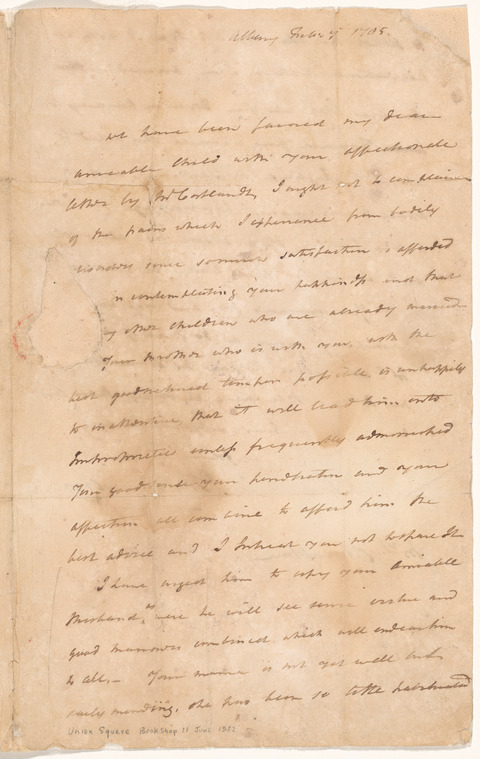 Albany 1785.
we have been favored my dear
amiable Child with your affectionate
letter by Mr Cortlandt, I ought not to complain
of the pains which I experience from bodily
disorders since so much satisfaction is afforded
in contemplating your happiness and that
my other children who are already married
Your brother who is with you, with the
best goodnatured temper possible is unhappily
so inattentive that it will lead him into
unless frequently admonished
Your good sense your and your
affection all combine to afford him the
best advice and I Intreat you not to spare It
I have urged him to copy your Amiable
Husband, were he will see sense virtue and
good manners combined which will endear him
to all, – Your mama is not yet well but
mending, she has been so little habituated
Union Square Bookshop 11 June 1932